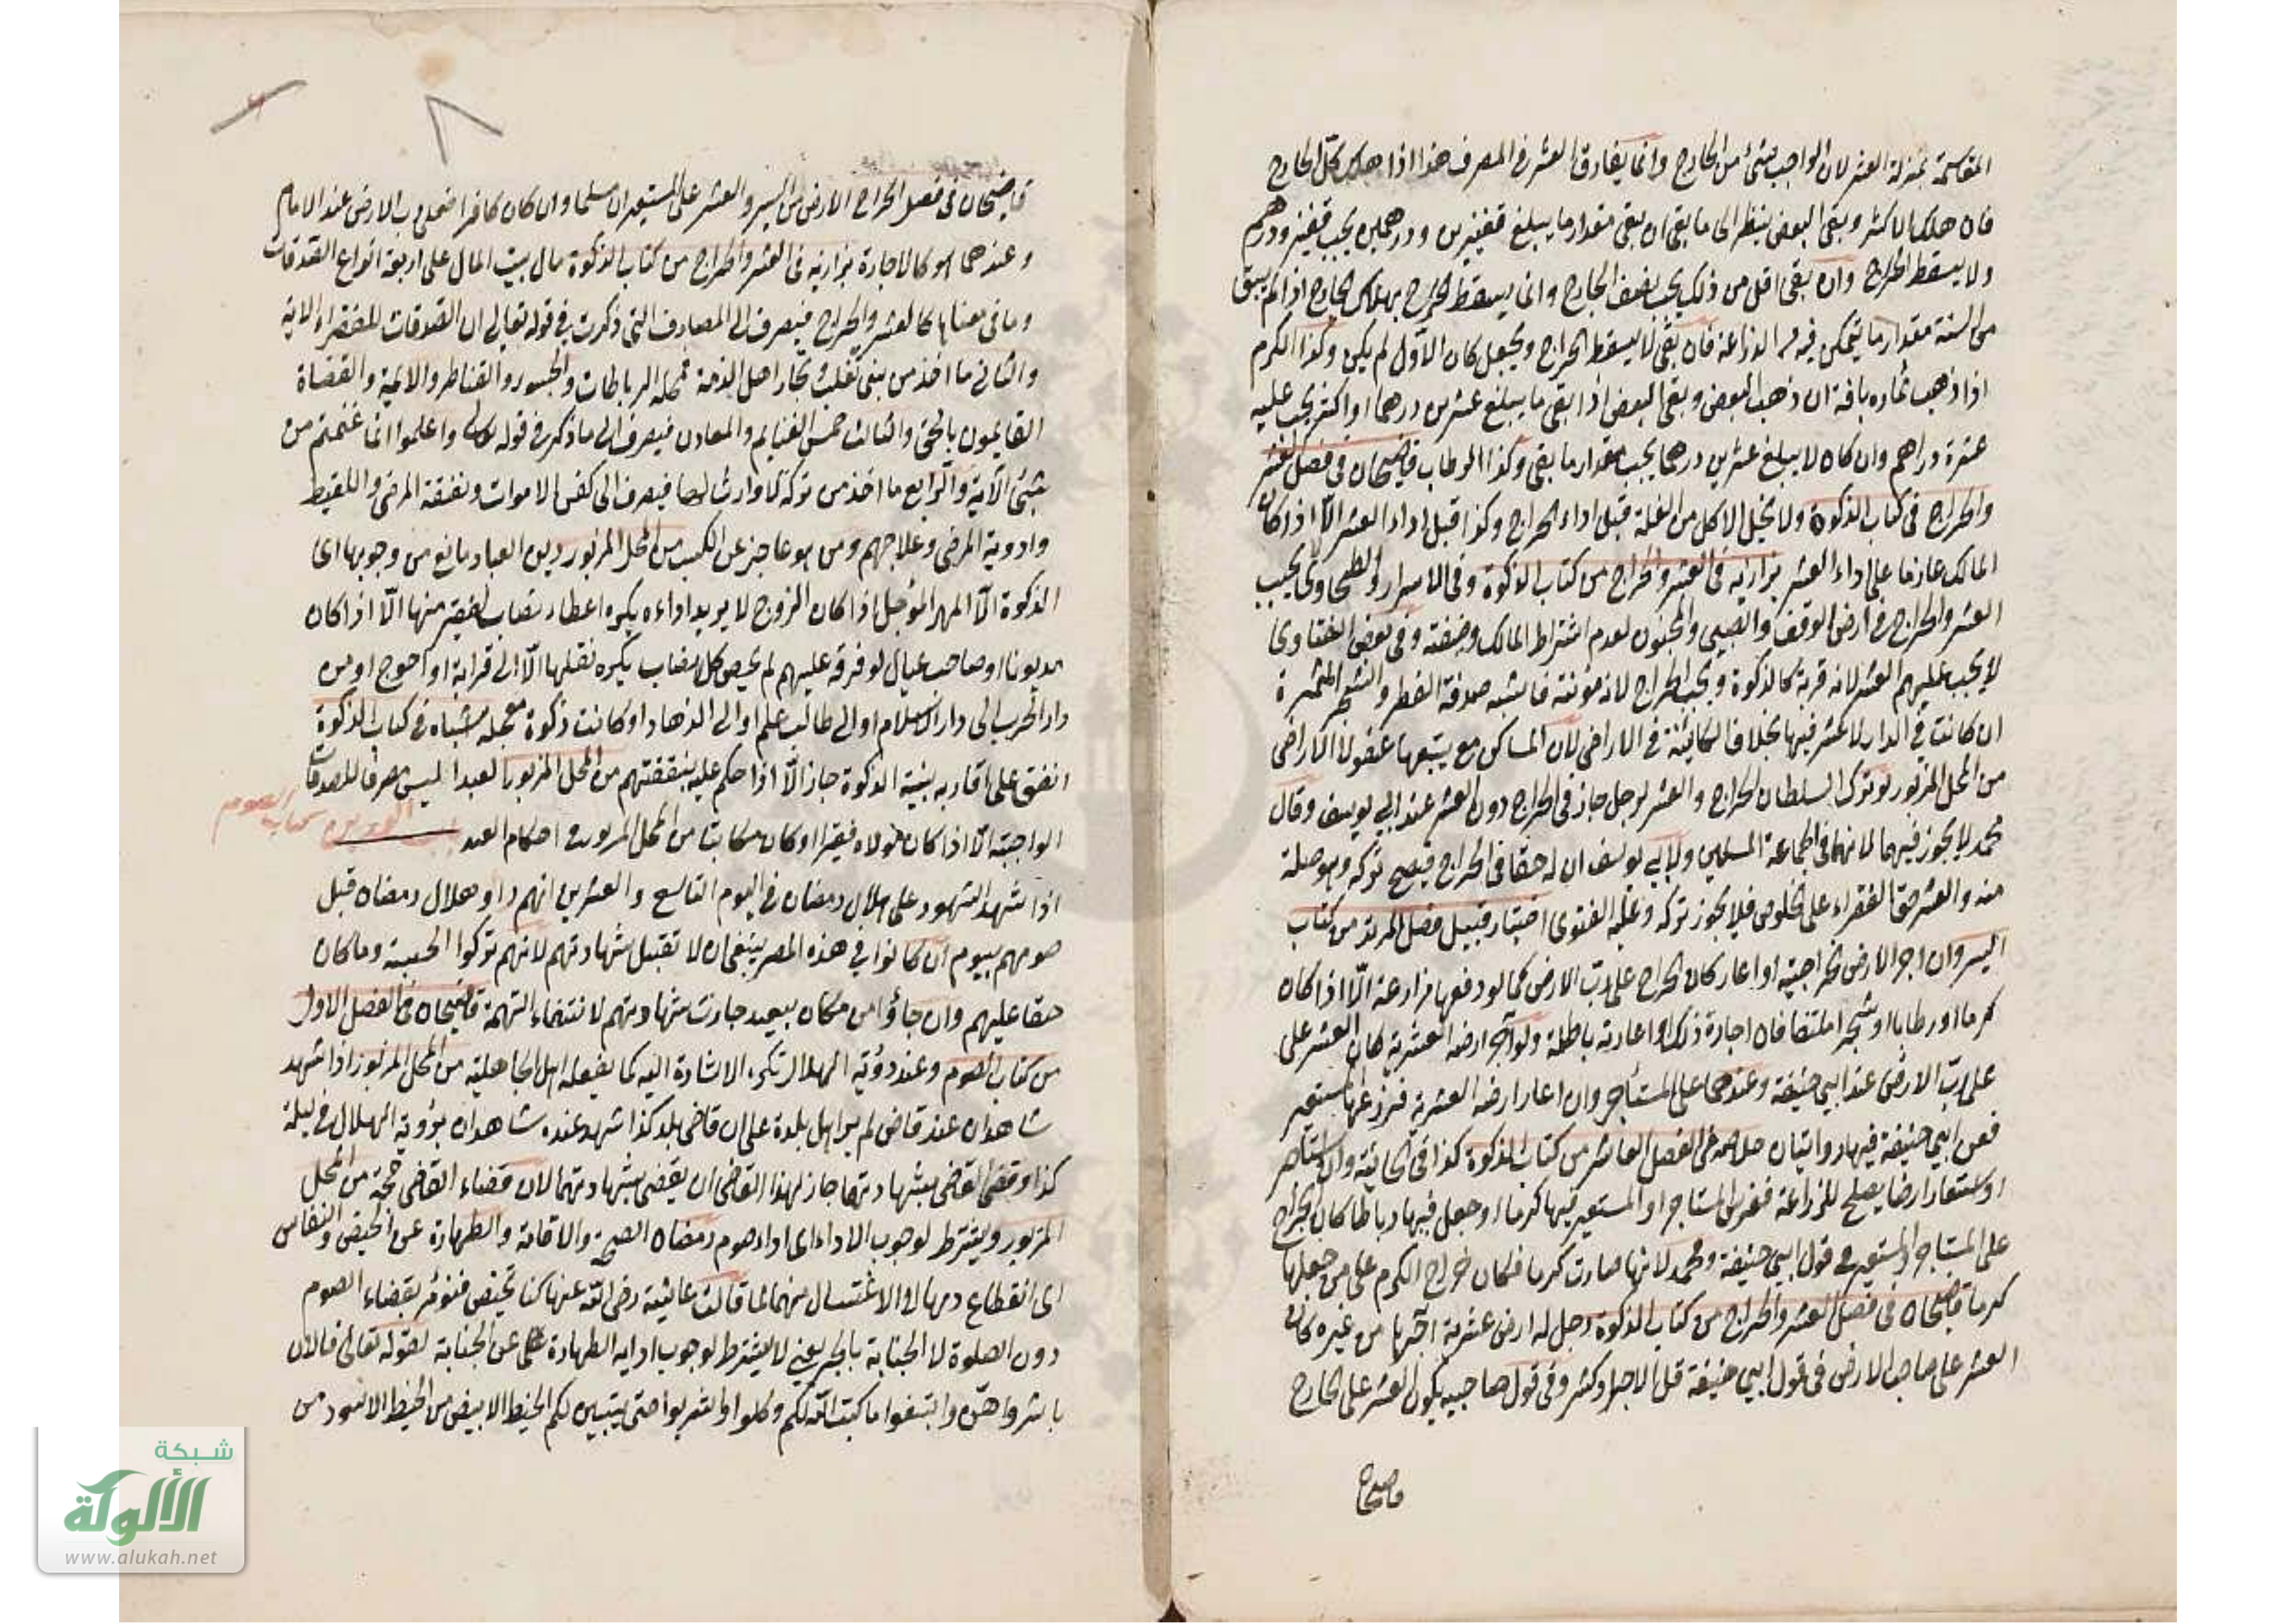 المقاسمة بمنزلة العشر لان الواجب شئ من الخارج وانما يفارق العشر في المصرف هذا اذا هلك كل الخارج
فان هلك الاكثر وبقى البعض ينظر الى ما بقى ان بقى مقدار ما يبلغ قفيزين ودرهمين يجب قفيز ودرهم
ولا يسقط الخراج وان بقى اقل من ذلك يجب نصف الخارج وانما يسقط الخراج بهلاك الخارج اذا لم يبق
من السنة مقدار ما يتمكن فيه من الزراعة فان بقى لا يسقط الخراج ويجعل كان الاول لم يكن وكذا الكرم
اذا ذهب ثماره بافة ان ذهب البعض وبقى البعض اذا بقى ما يبلغ عشرين درهما او اكثر يجب عليه
عشرة دراهم وان كان لا يبلغ عشرين درهما يجب مقدار ما بقى وكذا الرطاب قاضيخان في فصل العشر
والخراج في كتاب الزكوة ولا يحل الاكل من الغلة قبل اداء الخراج وكذا قبل اداء العشر الا اذا كان
المالك عازما على اداء العشر بزازيه في العشر والخراج من كتاب الزكوة وفي الاسرار والطحاوى يجب
العشر والخراج في ارض الوقف والصبى والمجنون لعدم اشتراط المالك وصفته وفي بعض الفتاوى
لا يجب عليهم العشر لانه قربة كالزكوة ويجب الخراج لانه مؤنة فاشبه صدقة الفطر والشجر المثمرة
ان كانت في الدار لا عشر فيها بخلاف الكائنة في الاراضى لان المساكن مع يتبعها عفو لا الاراضى
من المحل المزبور لو ترك السلطان الخراج والعشر لرجل جاز في الخراج دون العشر عند ابي يوسف وقال
محمد لا يجوز فيهما لانهما في لجماعة المسلمين ولابي يوسف ان له حقا في الخراج فيصح تركه وهو صلة
منه والعشر حق الفقراء على الخلوص فلا يجوز تركه وعليه الفتوى اختيار قبيل فصل المرتد من كتاب
السير وان اجر الارض خراجية او اعار كان الخراج على رب الارض كما لو دفعها مزارعة الا اذا كان
كرما او رطابا او شجرا ملتفا فان اجارة ذلك او اعارته باطلة ولو آجر ارضه العشرية كان العشر على
على رب الارض عند ابي حنيفة وعندهما على المستأجر وان اعار ارضه العشرية فزرعها المستعير
فعن ابي حنيفة فيها روايتان خلاصه في الفصل العاشر من كتاب الزكوة كذا في الخانية وان استأجر
او استعار ارضا يصلح للزراعة فغرس المستأجر او المستعير فيها كرما او جعل فيها رطابا كان الخراج
على المستأجر او المستعير في قول ابي حنيفة ومحمد لانها صارت كرما فكان خراج الكرم على من جعلها
كرما قاضيخان في فصل العشر والخراج من كتاب الزكوة رجل له ارض عشرية آجرها من غيره كان
العشر على صاحب الارض في قول ابي حنيفة قل الاجر او كثر وفي قول صاحبيه يكون العشر على الخارج
قاضيخان
قاضيخان في فصل الخراج الارض من السير والعشر على المستعير ان مسلما وان كان كافرا فعلى رب الارض عند الامام
وعندهما هو كالاجارة بزازيه في العشر والخراج من كتاب الزكوة مال بيت المال على اربعة انواع الصدقات
وما في معناها كالعشر والخراج فيصرف الى المصارف التى ذكرت في قوله تعالى ان الصدقات للفقراء الاية
والثانى ما اخذ من بنى تغلب وتجار اهل الذمة محله الرباطات والجسور والقناطر والائمة والقضاة
القايمون بالحق والثالث خمس الغنايم والمعادن فيصرف الى ما ذكر في قوله تعالى واعلموا انما غنمتم من
شئ الآية والرابع ما اخذ من تركة لا وارث لها فيصرف الى كفن الاموات ونفقة المرضى واللقيط
وادوية المرضى وعلاجهم ومن هو عاجز عن الكسب من المحل المزبور دين العباد مانع من وجوبها اى
الزكوة الا المهر المؤجل اذا كان الزوج لا يريد اداءه يكره اعطاء نصاب لفقير منها الا اذا كان
مديونا او صاحب عيال لو فرقه عليهم لم يخص كل نصاب يكره نقلها الا الى قرابة او احوج او من
دار الحرب الى دار الاسلام او الى طالب علم او الى الزهاد او كانت زكوة معجله اشباه في كتاب الزكوة
انفق على اقاربه بنية الزكوة جاز الا اذا حكم عليه بنفقتهم من المحل المزبور العبد ليس مصرفا للصدقات
الواجبة الا اذا كان مولاه فقيرا او كان مكاتبا من المحل المزبور في احكام العبد
كتاب الصوم
اذا شهد الشهود على هلال رمضان في اليوم التاسع والعشرين انهم راو هلال رمضان قبل
صومهم بيوم ان كانوا في هذه المصر ينبغى ان لا تقبل شهادتهم لانهم تركوا الحسبة وما كان
حقا عليهم وان جاؤا من مكان بعيد جازت شهادتهم لانتفاء التهمة قاضيخان في الفصل الاول
من كتاب الصوم وعند رؤية الهلال تكره الاشارة اليه كما يفعله اهل الجاهلية من المحل المزبور اذا شهد
شاهدان عند قاض لم ير اهل بلدة على ان قاضى بلد كذا شهد عنده شاهدان برؤية الهلال في ليلة
كذا وقضى القاضى بشهادتهما جاز لهذا القاضى ان يقضى بشهادتهما لان قضاء القاضى حجة من المحل
المزبور ويشترط لوجوب الاداء اى اداء صوم رمضان الصحة والاقامة والطهارة عن الحيض والنفاس
اى انقطاع دمهما لا الاغتسال منهما لما قالت عائشة رضى الله عنها كنا نحيض فنؤمر بقضاء الصوم
دون الصلوة لا الجنابة بالجر يعنى لا يشترط لوجوب ادايه الطهارة عن الجنابة لقوله تعالى فالان
باشروهن وابتغوا ما كتب الله لكم وكلوا واشربوا حتى يتبين لكم الخيط الابيض من الخيط الاسود من
شبكة
الألوكة
www.alukah.net